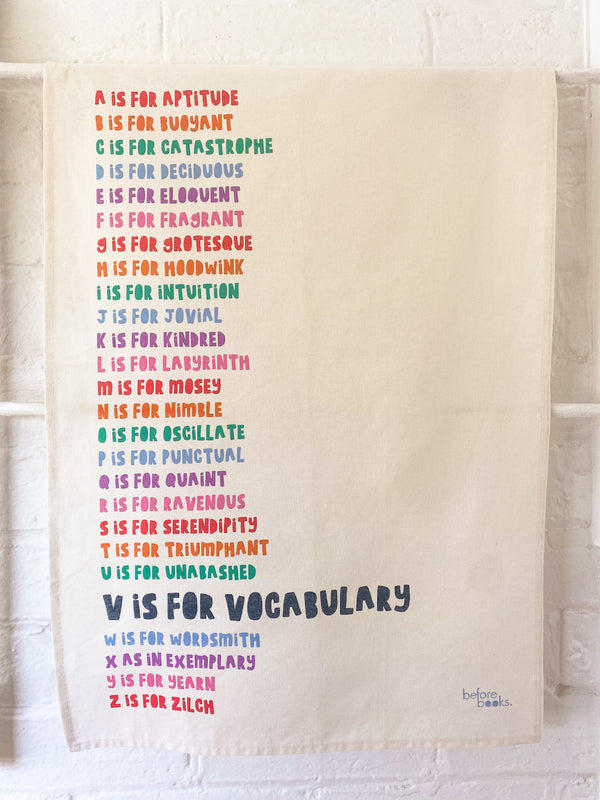 A is FOR APTiTUDE
B is FOR BUOYANT
C is FOR CATASTROPHE
D is FOR DECiDUOUS
E is FOR ELOQUENT
F is FOR FRAgRANT
g is FOR gROTESQUE
H is FOR HOODWiNK
i is FOR iNTUiTiON
J is FOR JOViAL
K is FOR KiNDRED
L is FOR LAByRiNTH
m is FOR mOSEy
N is FOR NimBLE
O is FOR OSCiLLATE
P is FOR PUNCTUAL
Q is FOR QUAiNT
R is FOR RAVENOUS
S is FOR SERENDiPiTy
T is FOR TRiUmPHANT
U is FOR UNABASHED
V is FOR VOCABULARy
W is FOR WORDSmiTH
X AS iN EXEmPLARy
y is FOR yEARN
Z is FOR ZiLCH
before
books.